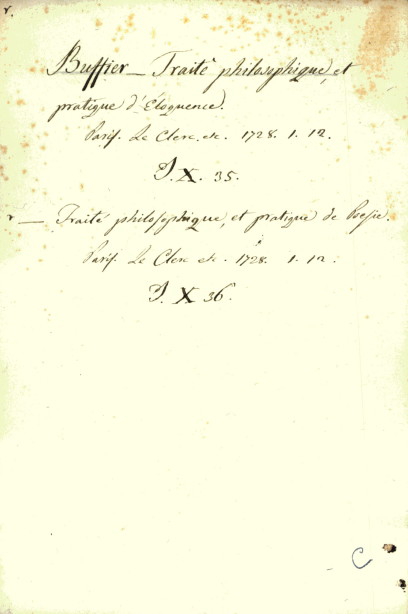 Buffier — Traité philosophique, et
pratique d'Éloquence.
Paris. Le Clerc. etc. 1728. 1. 12.
J. X. 35.
— Traité philosophique, et pratique de Poesie.
Paris. Le Clerc etc. 1728. 1. 12.
J. X 36.
C